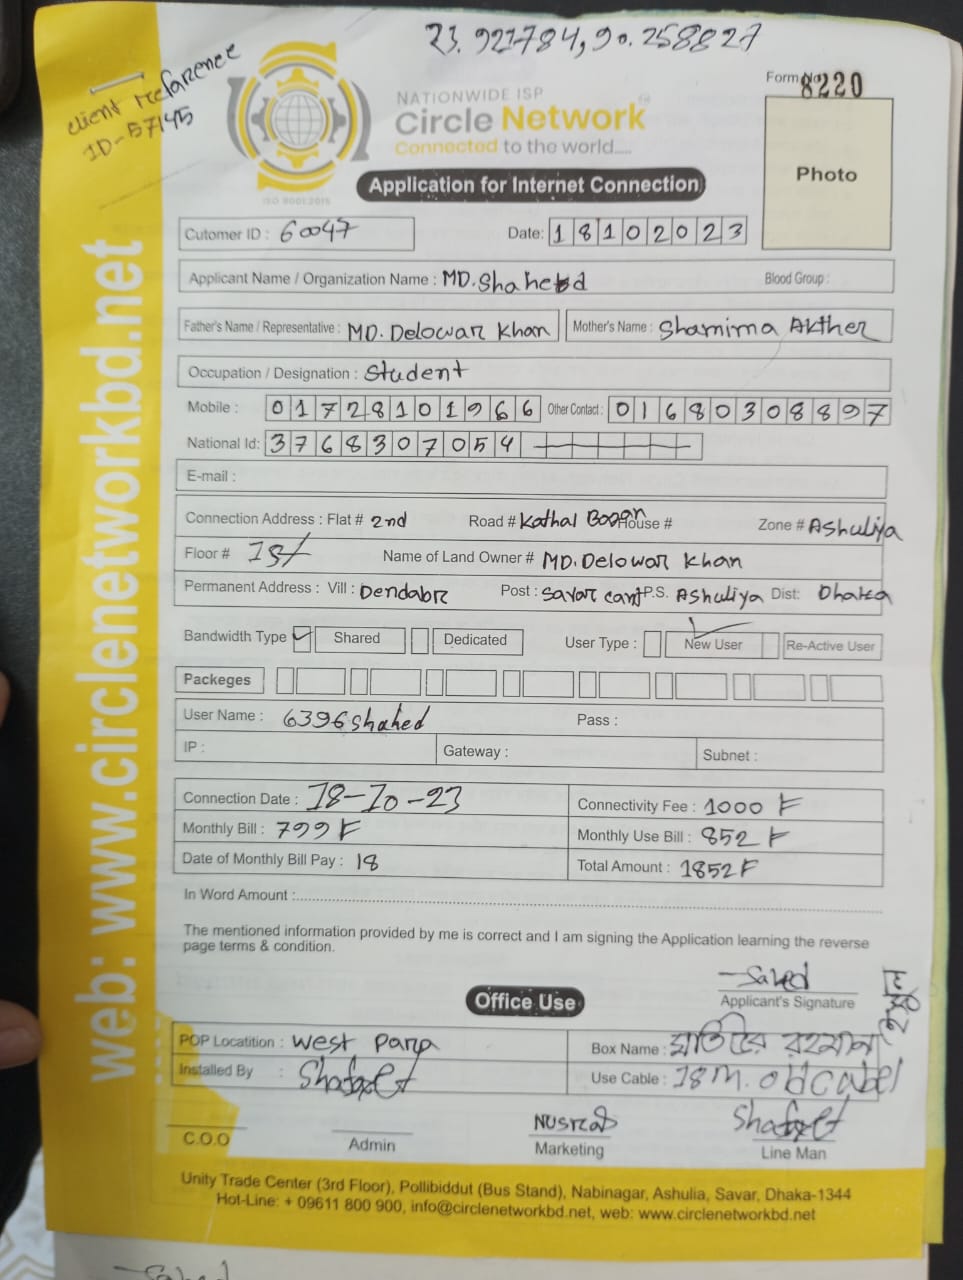 23.921784,90.258827
client reference
ID-57145
Form No 8220
NATIONWIDE ISP
Circle Network
Connected to the world.....
ISO 9001:2015
Photo
Application for Internet Connection
Cutomer ID : 60047
Date: 18102023
Applicant Name / Organization Name : MD. Shahed
Blood Group :
Father's Name / Representative : MD. Delowar Khan
Mother's Name : Shamima Akther
Occupation / Designation : Student
Mobile : 01728101966
Other Contact : 01680308897
National Id: 3768307054
E-mail :
Connection Address : Flat # 2nd Road # Kathal Bagan House # Zone # Ashuliya
Floor # 1st Name of Land Owner # MD. Delowar Khan
Permanent Address : Vill : Dendabr Post : Savar cant P.S. Ashuliya Dist: Dhaka
Bandwidth Type Shared Dedicated User Type : New User Re-Active User
Packeges
User Name : 6396shahed Pass :
IP : Gateway : Subnet :
Connection Date : 18-10-23 Connectivity Fee : 1000 F
Monthly Bill : 799 F Monthly Use Bill : 852 F
Date of Monthly Bill Pay : 18 Total Amount : 1852 F
In Word Amount :
The mentioned information provided by me is correct and I am signing the Application learning the reverse
page terms & condition.
Sahed
Applicant's Signature
Office Use
POP Locatition : West Para Box Name : রহমান
Installed By : Use Cable : 18 m. old cabel
C.O.O
Admin
Nusrat
Marketing
Line Man
Unity Trade Center (3rd Floor), Pollibiddut (Bus Stand), Nabinagar, Ashulia, Savar, Dhaka-1344
Hot-Line: + 09611 800 900, info@circlenetworkbd.net, web: www.circlenetworkbd.net
web: www.circlenetworkbd.net
Sahed